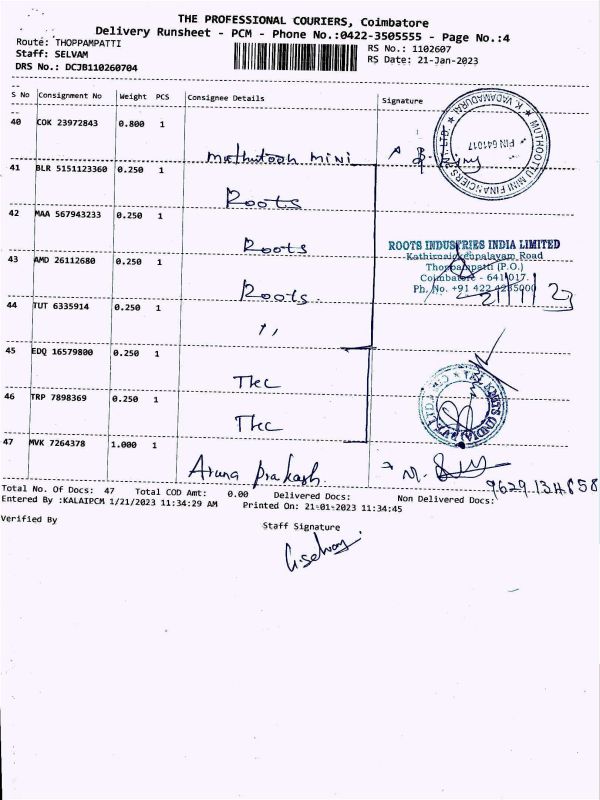 THE PROFESSIONAL COURIERS, Coimbatore
Delivery Runsheet - PCM - Phone No.:0422-3505555 - Page No.:4
Route: THOPPAMPATTI
Staff: SELVAM
DRS No.: DCJB110260704
RS No.: 1102607
RS Date: 21-Jan-2023
S No Consignment No Weight PCS Consignee Details Signature
40 COK 23972843 0.800 1
Muthutoah Mini
MUTHOOTTU MINI FINANCIERS LTD. ★ K. VADAMADURAI ★
PIN 641017
41 BLR 5151123360 0.250 1
Roots
42 MAA 567943233 0.250 1
Roots
ROOTS INDUSTRIES INDIA LIMITED
Kathirnaickenpalayam Road
Thoppampatti (P.O.)
Coimbatore - 641 017.
Ph. No. +91 422 4285000
21/1/23
43 AMD 26112680 0.250 1
Roots
44 TUT 6335914 0.250 1
,,
45 EDQ 16579800 0.250 1
TKC
46 TRP 7898369 0.250 1
TKC
47 MVK 7264378 1.000 1
Aruna Prakash
9629134858
Total No. Of Docs: 47 Total COD Amt: 0.00 Delivered Docs: Non Delivered Docs:
Entered By :KALAIPCM 1/21/2023 11:34:29 AM Printed On: 21-01-2023 11:34:45
Verified By
Staff Signature
G.selvaj